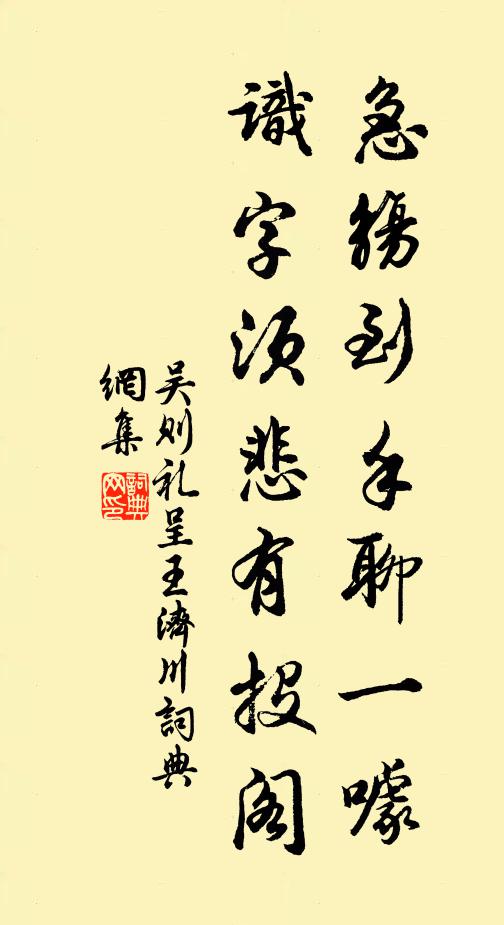 急觴到手聊一噱
識字須悲有投閣
吴则礼呈王濟川詞典
網集
詞典
网印